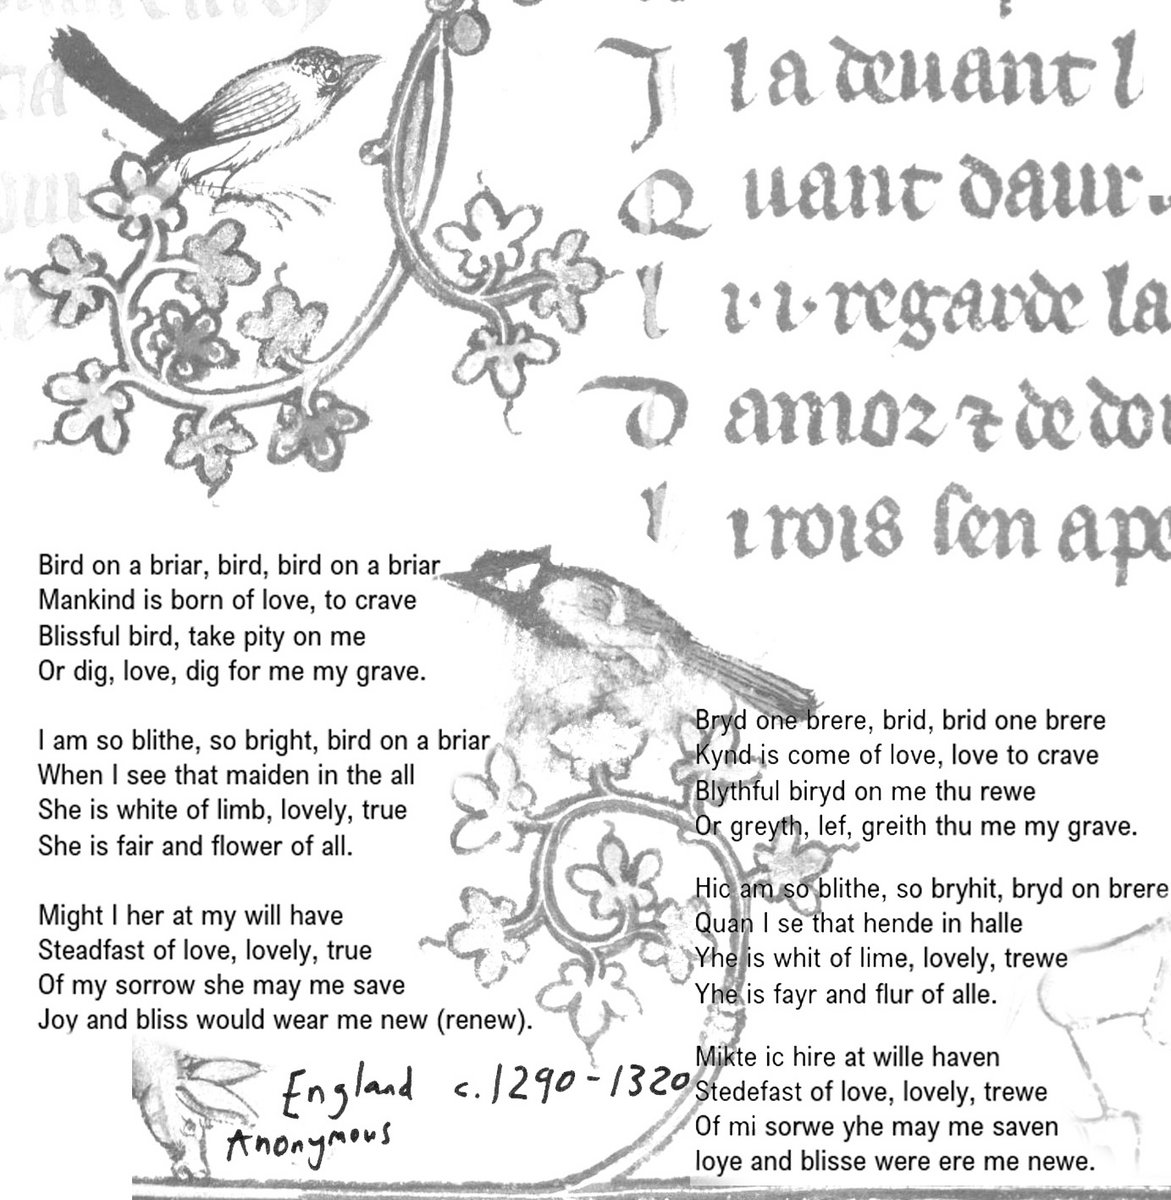 J la deuant l
Q uant daur.
l i·i·regarde la
D amoz ⁊ de dou
l i rois sen ape
Bird on a briar, bird, bird on a briar
Mankind is born of love, to crave
Blissful bird, take pity on me
Or dig, love, dig for me my grave.
I am so blithe, so bright, bird on a briar
When I see that maiden in the all
She is white of limb, lovely, true
She is fair and flower of all.
Might I her at my will have
Steadfast of love, lovely, true
Of my sorrow she may me save
Joy and bliss would wear me new (renew).
England c. 1290-1320
Anonymous
Bryd one brere, brid, brid one brere
Kynd is come of love, love to crave
Blythful biryd on me thu rewe
Or greyth, lef, greith thu me my grave.
Hic am so blithe, so bryhit, bryd on brere
Quan I se that hende in halle
Yhe is whit of lime, lovely, trewe
Yhe is fayr and flur of alle.
Mikte ic hire at wille haven
Stedefast of love, lovely, trewe
Of mi sorwe yhe may me saven
Ioye and blisse were ere me newe.